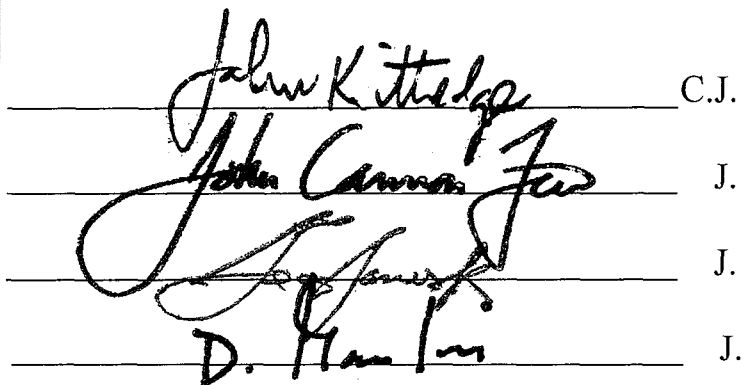 John Kittredge C.J.
John Cannon Few J.
J.
D. J.